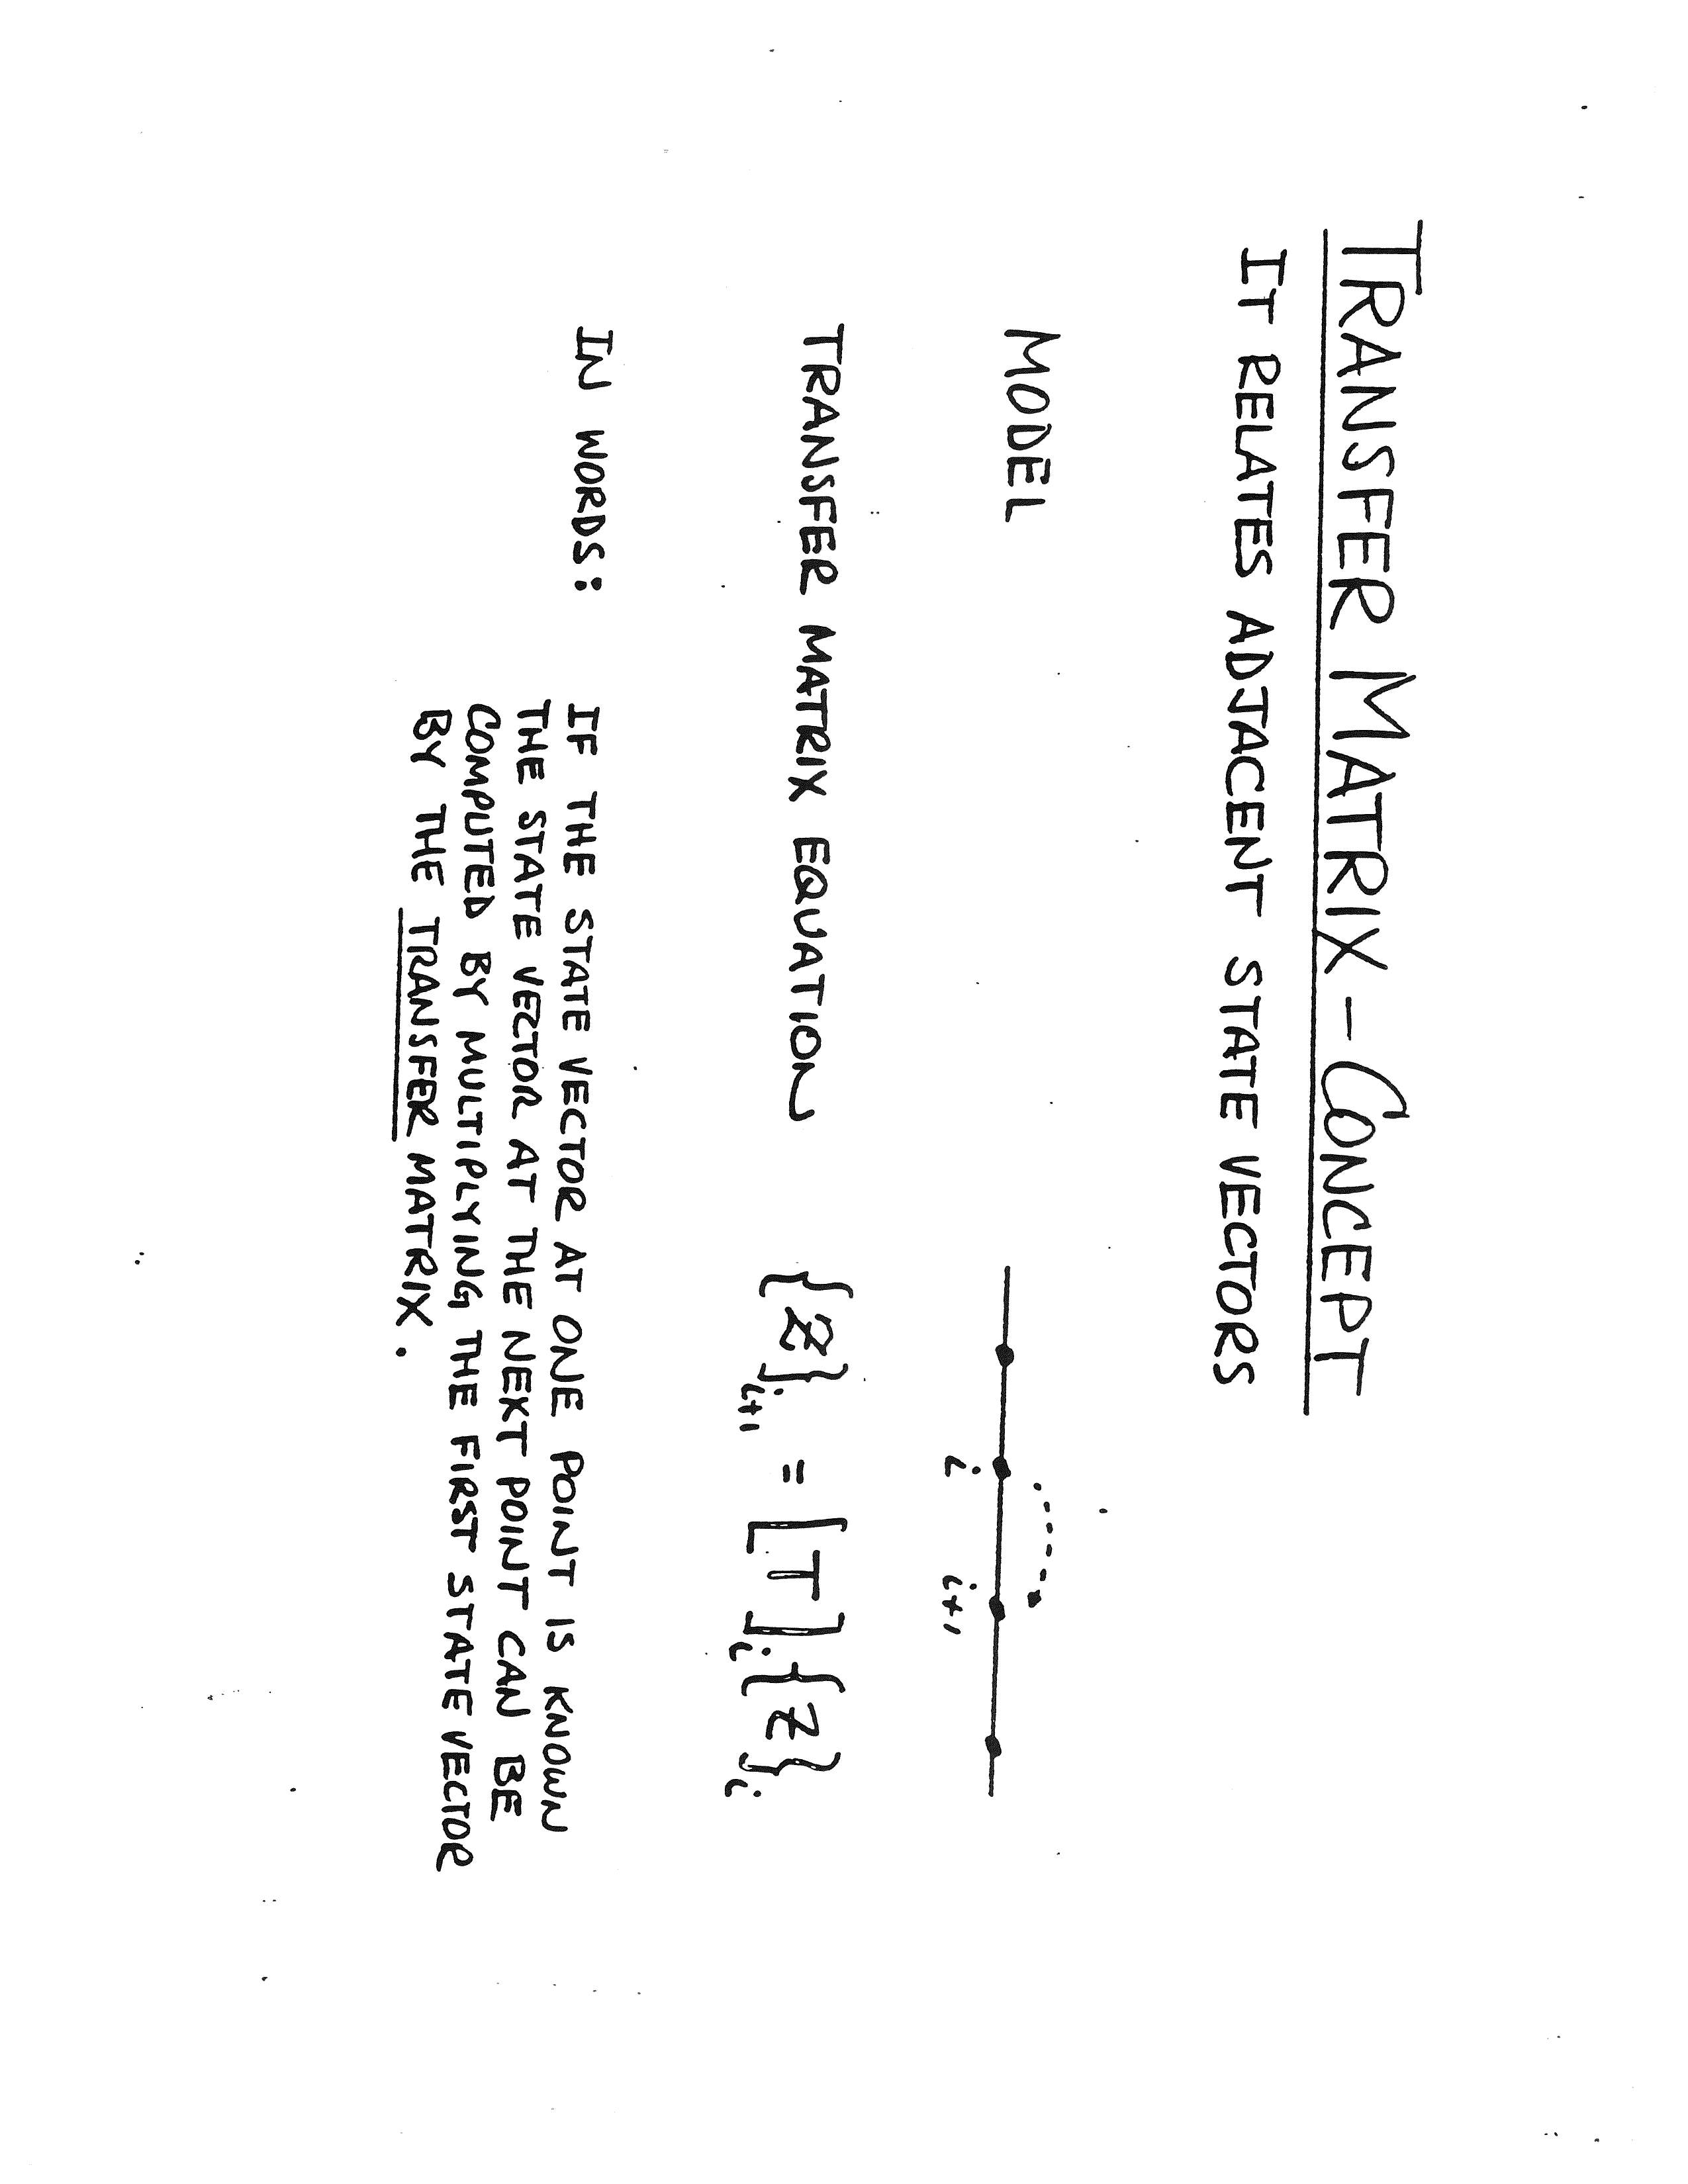 TRANSFER MATRIX - CONCEPT
IT RELATES ADJACENT STATE VECTORS
MODEL
i
i+1
TRANSFER MATRIX EQUATION {Z}i+1 = [T]i {Z}i
IN WORDS: IF THE STATE VECTOR AT ONE POINT IS KNOWN
THE STATE VECTOR AT THE NEXT POINT CAN BE
COMPUTED BY MULTIPLYING THE FIRST STATE VECTOR
BY THE TRANSFER MATRIX.